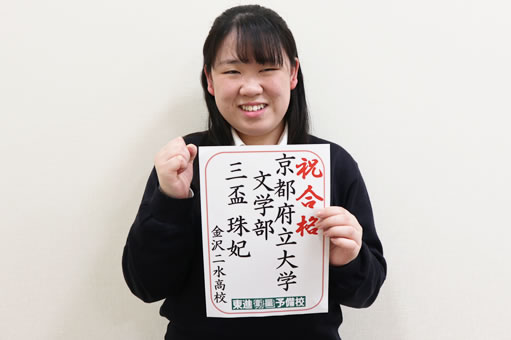 祝合格
京都府立大学
文学部
三盃 珠妃
金沢二水高校
東進衛星予備校